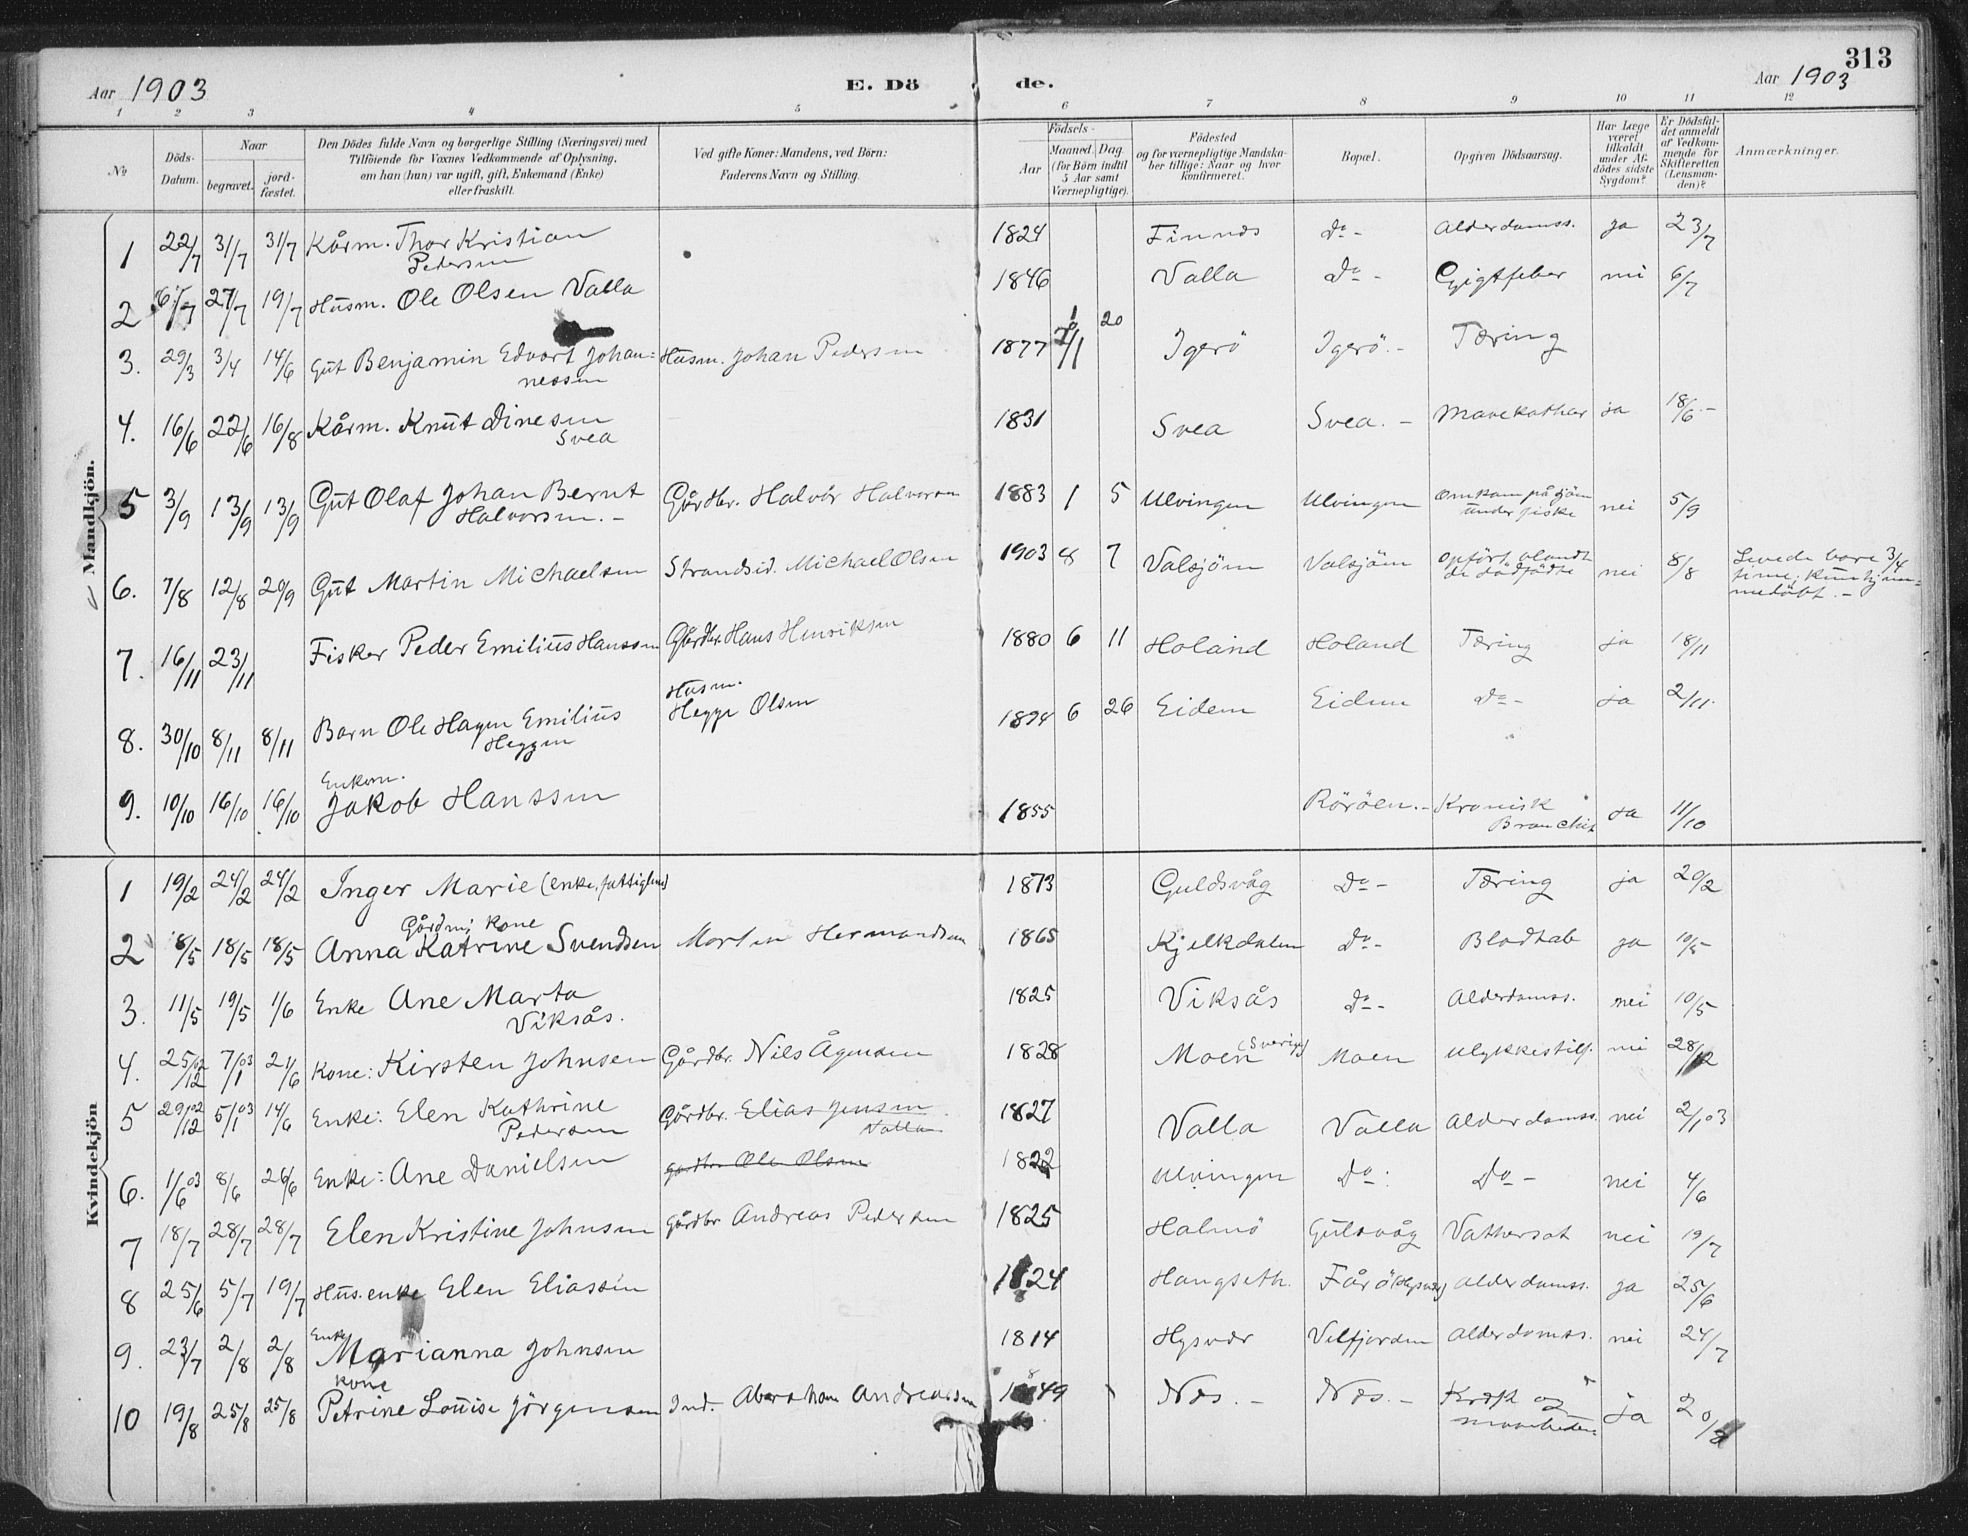 313
Aar 1903 E. Dö de. Aar 1903
1 2 3 4 5 6 7 8 9 10 11 12
No Döds-Datum. Naar begravet. jord-fæstet. Den Dödes fulde Navn og borgerlige Stilling (Næringsvei) med Tilföiende for Voxnes Vedkommende af Oplysning, om han (hun) var ugift, gift, Enkemand (Enke) eller fraskilt. Ved gifte Koner: Mandens, ved Börn: Faderens Navn og Stilling. Födsels- Aar Maaned. Dag (for Börn indtil 5 Aar samt Værnepligtige). Födested og for værnepligtige Mandskaber tillige: Naar og hvor konfirmeret. Bopæl. Opgiven Dödsaarsag. Har Læge været tilkaldt under Afdödes sidste Sygdom? Er Dödsfaldet anmeldt af Vedkommende for Skifteretten (Lensmanden)? Anmærkninger.
Mandkjön.
1 22/7 31/7 31/7 Kårm. Thor Kristian Pedersen 1824 Finnes Do - Alderdomss. ja 23/7
2 6/7 27/7 19/7 Husm. Ole Olsen Valla 1846 Valla Do - Gigtfeber nei 6/7
3. 29/3 3/4 14/6 Gut Benjamin Edvart Johan=nessen Husm. Johan Pedersen 1877 20 Igerö Igerö. - Tæring
4. 16/6 22/6 16/8 Kårm. Knut Dinesen Svea 1831 Svea Svea. - Mavekathar ja 18/6 -
5 3/9 13/9 13/9 Gut Olaf Johan Bernt Halvorsen. - Gårdbr. Halvor Halvorsen 1883 1 5 Ulvingen Ulvingen Omkom på sjöen under fiske nei 5/9
6. 7/8 12/8 20/9 Gut Martin Michaelsen Strandsid. Michael Olsen 1903 8 7 Valsjöen Valsjöen Opfört blandt de dödfödte nei 8/8 Levede bare 3/4 time; kun hjem=medöbt. -
7. 16/11 23/11 Fisker Peder Emilius Hanssen Gårdbr. Hans Henriksen 1880 6 11 Holand Holand Tæring ja 18/11
8. 30/10 8/11 8/11 Barn Ole Hagen Emilius Heggen Husm. Hegge Olsen 1894 6 26 Eidem Eidem Do - ja 2/11.
9. 10/10 16/10 16/10 Enkem. Jakob Hanssen 1855 Röröen. - Kronisk Bronchit ja 11/10
Kvindekjön
1 19/2 24/2 24/2 Inger Marie (enke, fattiglem) 1873 Guldsvåg Do - Tæring ja 20/2
2 8/5 18/5 18/5 Gårdm. kone Anna Katrine Svendsen Morten Hermandsen 1865 Kjelkdalen Do - Blodtab ja 10/5
3. 11/5 19/5 1/6 Enke Ane Marta Viksås. 1825 Viksås Do - Alderdomss. nei 10/5
4. 25/12 02 7/1 03 21/6 Kone: Kirsten Johnsen Gårdbr. Nils Ågesen 1828 Moen (Sverige) Moen Ulykkestilf. nei 28/12
5 29/12 02 5/1 03 14/6 Enke: Elen Kathrine Pedersen Gårdbr. Elias Jensen Valla 1827 Valla Valla Alderdomss. nei 2/1 03
6. 1/6 03 8/6 26/6 Enke: Ane Danielsen gårdbr. Ole Olsen 1822 Ulvingen Do: Do - nei 4/6
7 18/7 28/7 28/7 Elen Kristine Johnsen gårdbr Andreas Pedersen 1825 Halmö Gulsvåg Vathersot nei 19/7
8 25/6 5/7 19/7 Hus.enke Elen Eliassen 1824 Haugseth. Fårö Alderdomss. ja 25/6
9. 23/7 2/8 2/8 Enke Marianna Johnsen 1814 Hysvær Velfjorden Alderdomss. nei 24/7
10 19/8 25/8 25/8 kone Petrine Louise Jörgensen Ind. Abraham Andreassen 1849 Næs. - Næs. - Kræft og ja 20/8